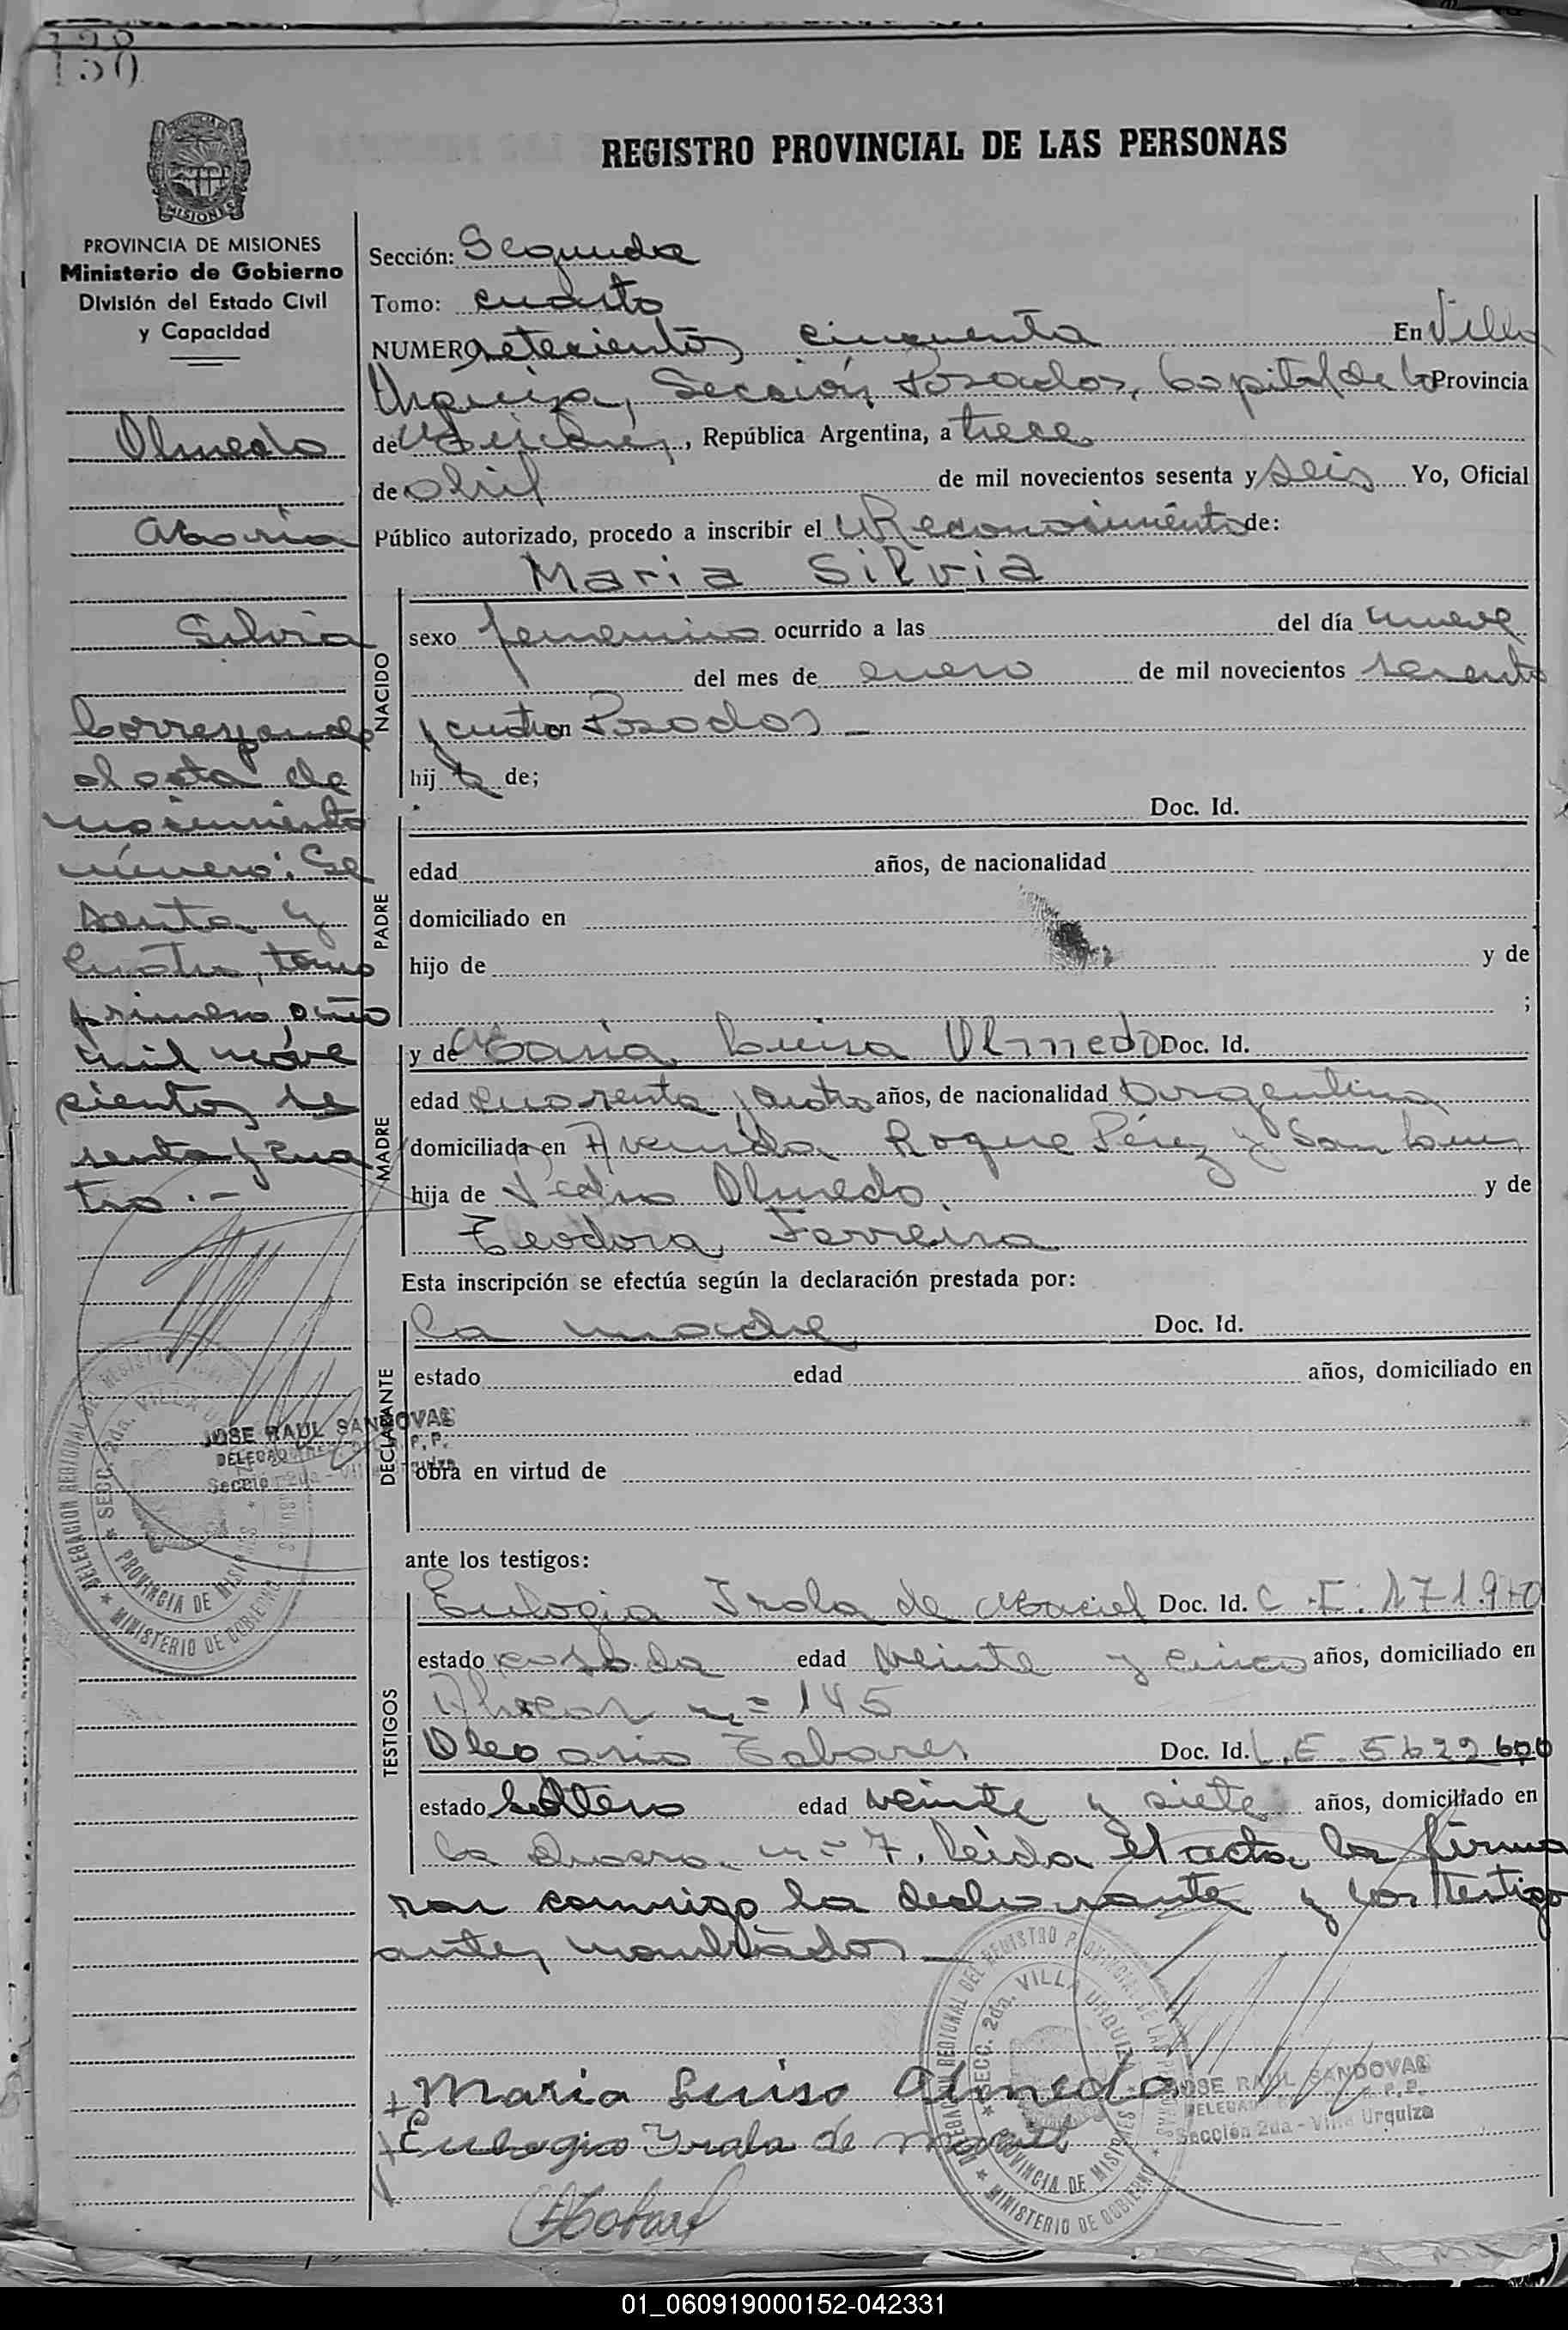 150
REGISTRO PROVINCIAL DE LAS PERSONAS
MISIONES
PROVINCIA DE MISIONES
Ministerio de Gobierno
División del Estado Civil
y Capacidad
Olmedo
Maria
Silvia
Corresponde
al acta de
nacimiento
número: Se
senta y
cuatro, tomo
primero, año
mil nove
cientos se
senta y cua
tro.-
JOSE RAUL SANDOVAL
DELEGADO R.P.P.
Sección 2da - Villa Urquiza
DELEGACION REGIONAL DEL REGISTRO
SECC. 2da. VILLA URQUIZA
PROVINCIA DE MISIONES
MINISTERIO DE GOBIERNO
Sección: Segunda
Tomo: cuarto
NUMERO setecientos cincuenta En Villa
Urquiza, Sección Posadas, Capital de la Provincia
de Misiones, República Argentina, a trece
de abril de mil novecientos sesenta y seis Yo, Oficial
Público autorizado, procedo a inscribir el Reconocimiento de:
Maria Silvia
NACIDO
sexo femenino ocurrido a las del día nueve
del mes de enero de mil novecientos sesenta
y cuatro en Posadas
hija de;
PADRE
Doc. Id.
edad años, de nacionalidad
domiciliado en
hijo de y de
;
MADRE
y de Maria Luisa Olmedo Doc. Id.
edad cuarenta y cuatro años, de nacionalidad Argentina
domiciliada en Avenida Roque Pérez y San Luis
hija de Pedro Olmedo y de
Teodora Ferreira
Esta inscripción se efectúa según la declaración prestada por:
DECLARANTE
La madre Doc. Id.
estado edad años, domiciliado en
obra en virtud de
ante los testigos:
TESTIGOS
Eulogia Irala de Maciel Doc. Id. C.I. 171.970
estado casada edad veinte y cinco años, domiciliado en
n= 145
Olegario Tabares Doc. Id. L.E. 5622600
estado Soltero edad veinte y siete años, domiciliado en
La n= 7. Leída el acta la firma
ran conmigo la declarante y los testigos
antes nombrados
DELEGACION REGIONAL DEL REGISTRO PROVINCIAL DE LAS PERSONAS
SECC. 2da. VILLA URQUIZA
PROVINCIA DE MISIONES
MINISTERIO DE GOBIERNO
JOSE RAUL SANDOVAL
DELEGADO R.P.P.
Sección 2da - Villa Urquiza
+ Maria Luisa Olmedo
+ Eulogia Irala de Maciel
01_060919000152-042331